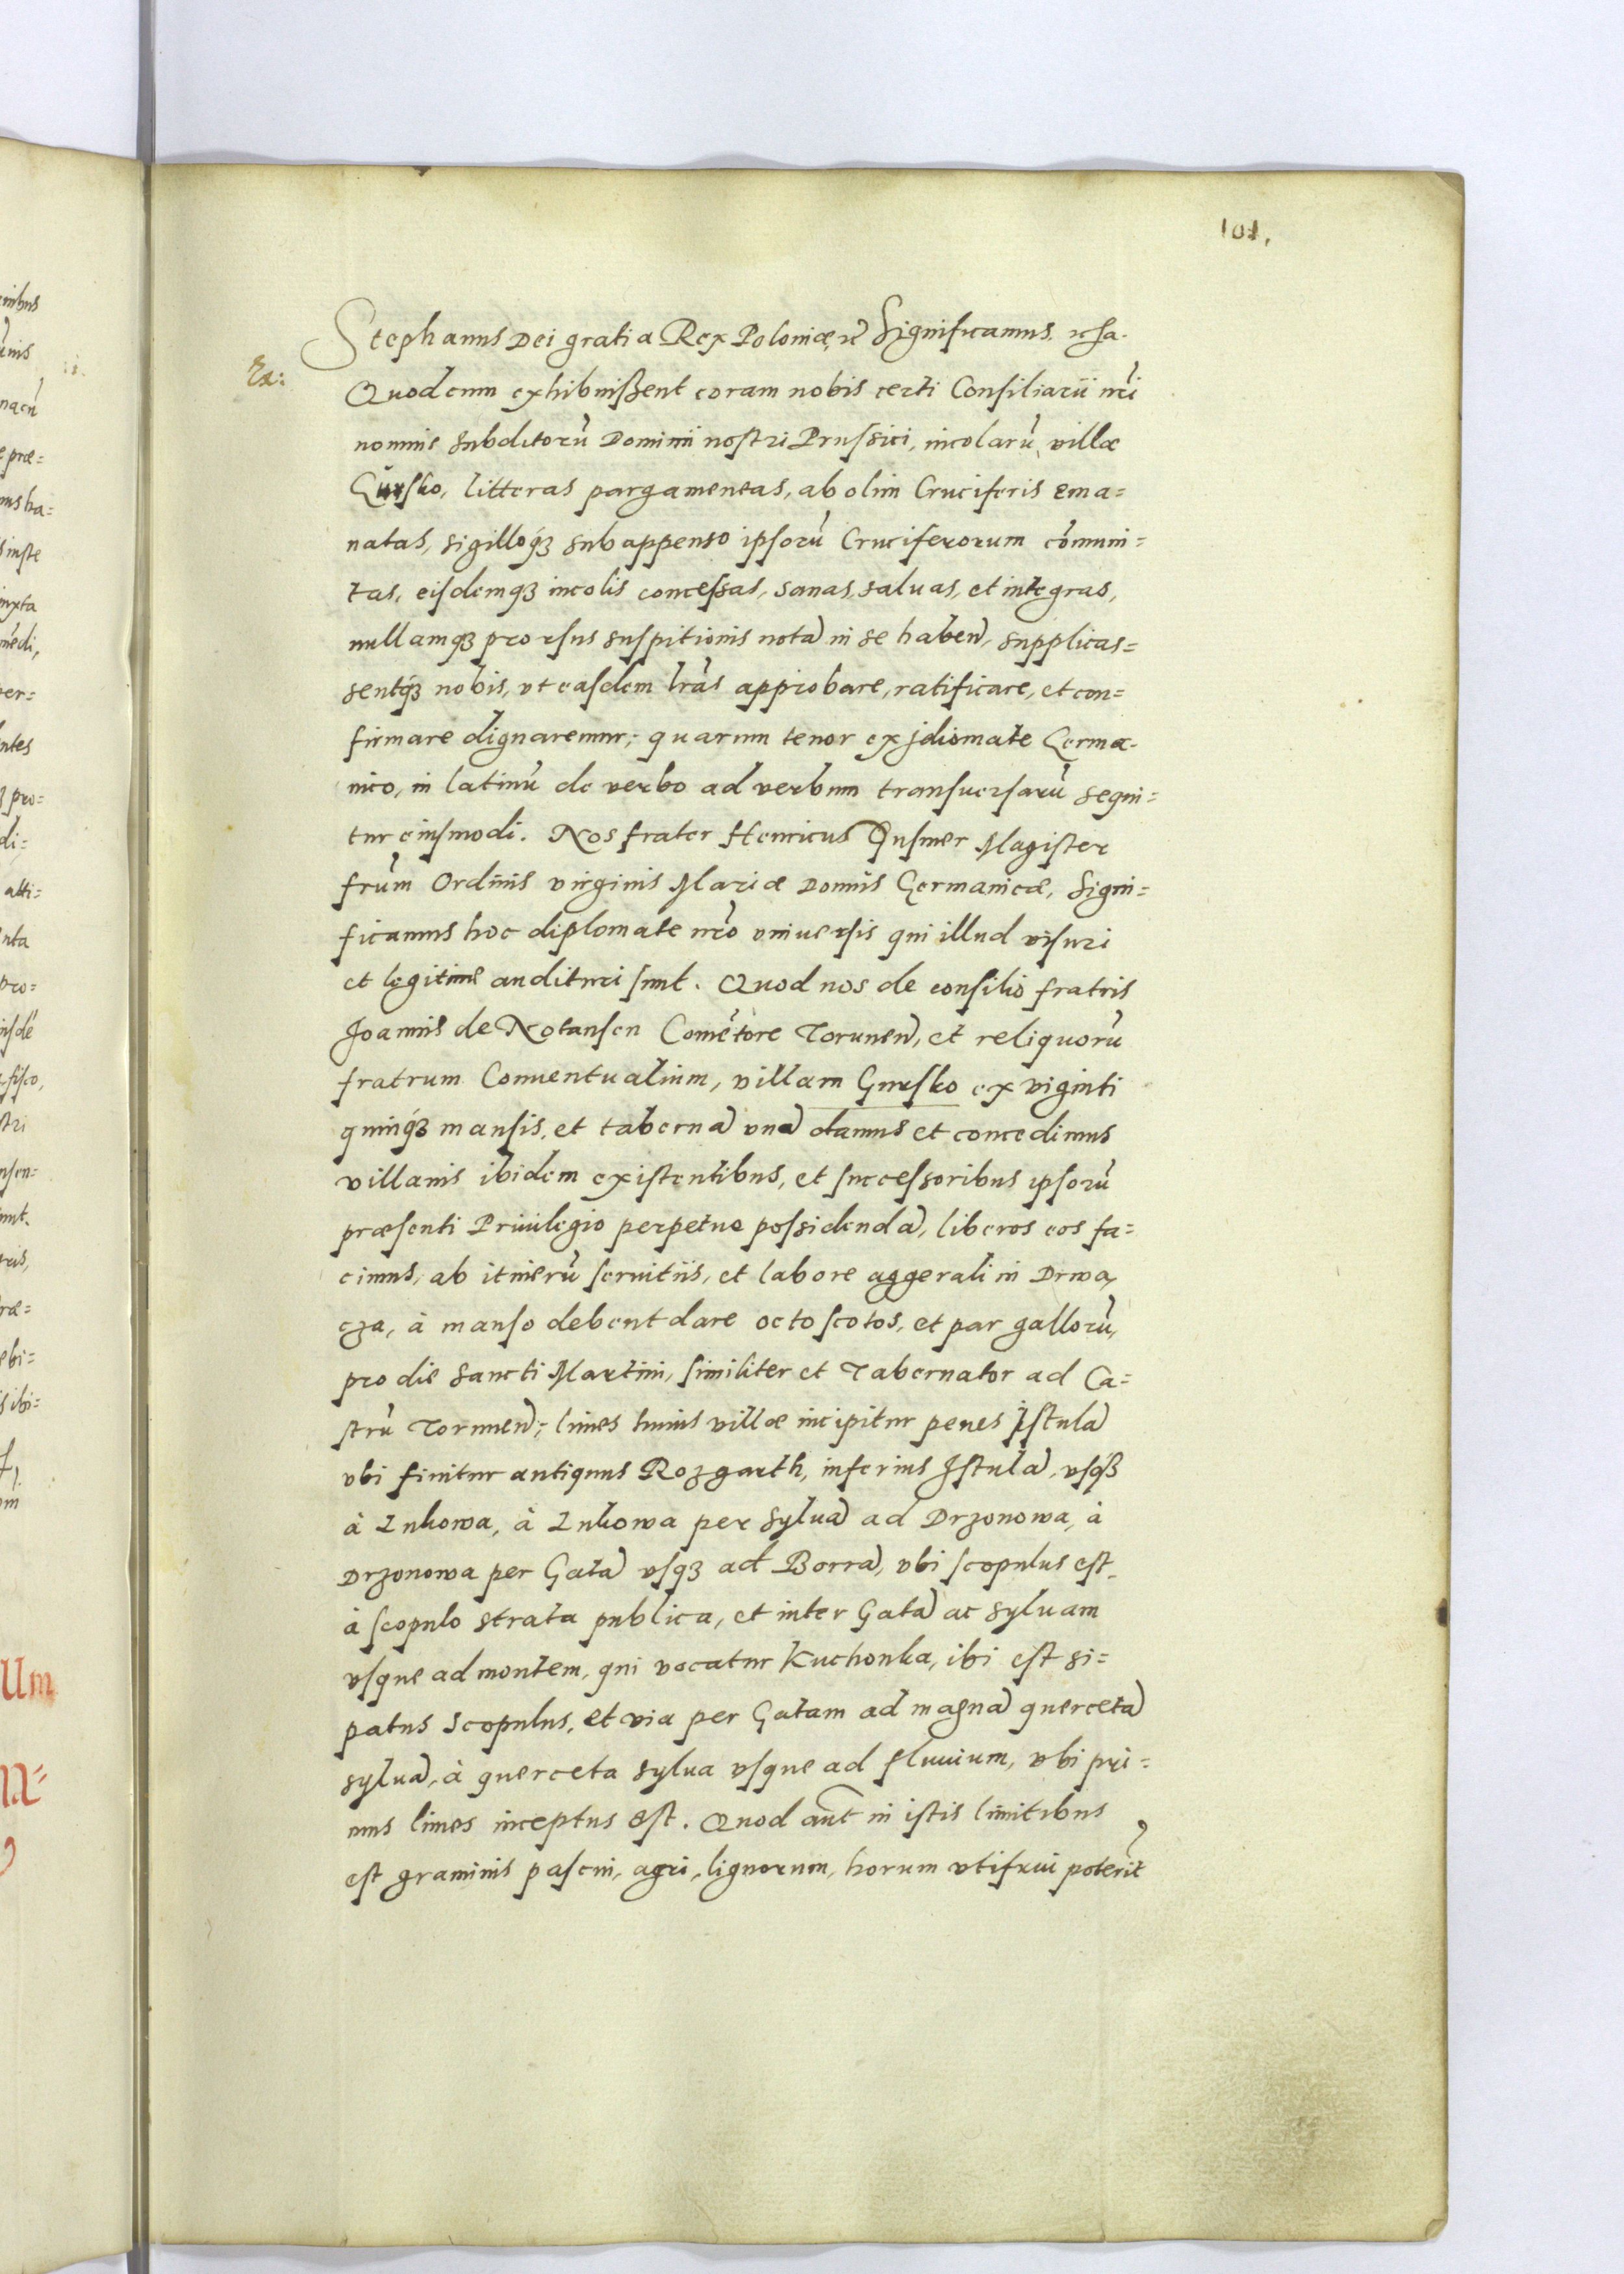 101.
Stephanus Dei gratia Rex Poloniæ, &c Significamus.
Ex:
Quod cum exhibuißent coram nobis certi Consiliarii nr̃i
nomine subditorũ Dominii nostri Prussici, incolarũ villæ
Gursko, litteras pargameneas, ab olim Cruciferis ema=
natas, sigilloq́ꝫ subappenso ipsorũ Cruciferorum cõmuni=
tas, eisdemqꝫ incolis concessas, sanas, saluas, et integras,
nullamqꝫ prorsus suspitionis notã in se habeñ, supplicas=
sentq́ꝫ nobis, vt easdem lr̃as approbare, ratificare, et con=
firmare dignaremur; quarum tenor ex jdiomate Germa-
nico, in latinũ de verbo ad verbum transuersarũ sequi=
tur eiusmodi. Nos frater Henricus Dusmer Magister
fr̃um Ordinis virginis Mariæ Domûs Germanicæ, Signi=
ficamus hoc diplomate nr̃o vniuersis qui illud visuri
et legitime audituri sunt. Quod nos de consilio fratris
Joannis de Notansen Comẽtore Toruneñ, et reliquorũ
fratrum Conuentualium, villam Gursko ex viginti
quinq́ꝫ mansis, et tabernã vnã damus et concedimus
villanis ibidem existentibus, et successoribus ipsorũ
præsenti Priuilegio perpetuo possidendã, liberos eos fa=
cimus, ab itinerũ seruitiis, et labore aggerali in Drwa,
cza, à manso debent dare octo scotos, et par gallorũ,
pro die Sancti Martini, similiter et Tabernator ad Ca=
strũ Toruneñ; limes huius villæ incipitur penes Istulã
vbi finitur antiquus Rozgarth, inferius Jstulã, vsq́ꝫ
à Lukowa, à Lukowa per syluã ad Drzonowa, à
Drzonowa per Gatã vsqꝫ ad Borrã, vbi scopulus est,
à scopulo strata publica, et inter Gatã ac syluam
vsque ad montem, qui vocatur Kuchonka, ibi est si=
patus scopulus, et via per Gatam ad magnã quercetã
syluã, à querceta sylua vsque ad fluuium, vbi pri=
mus limes inceptus est. Quod aũt in istis limitibus
est graminis pascui, agri, lignorum, horum vti frui poterit